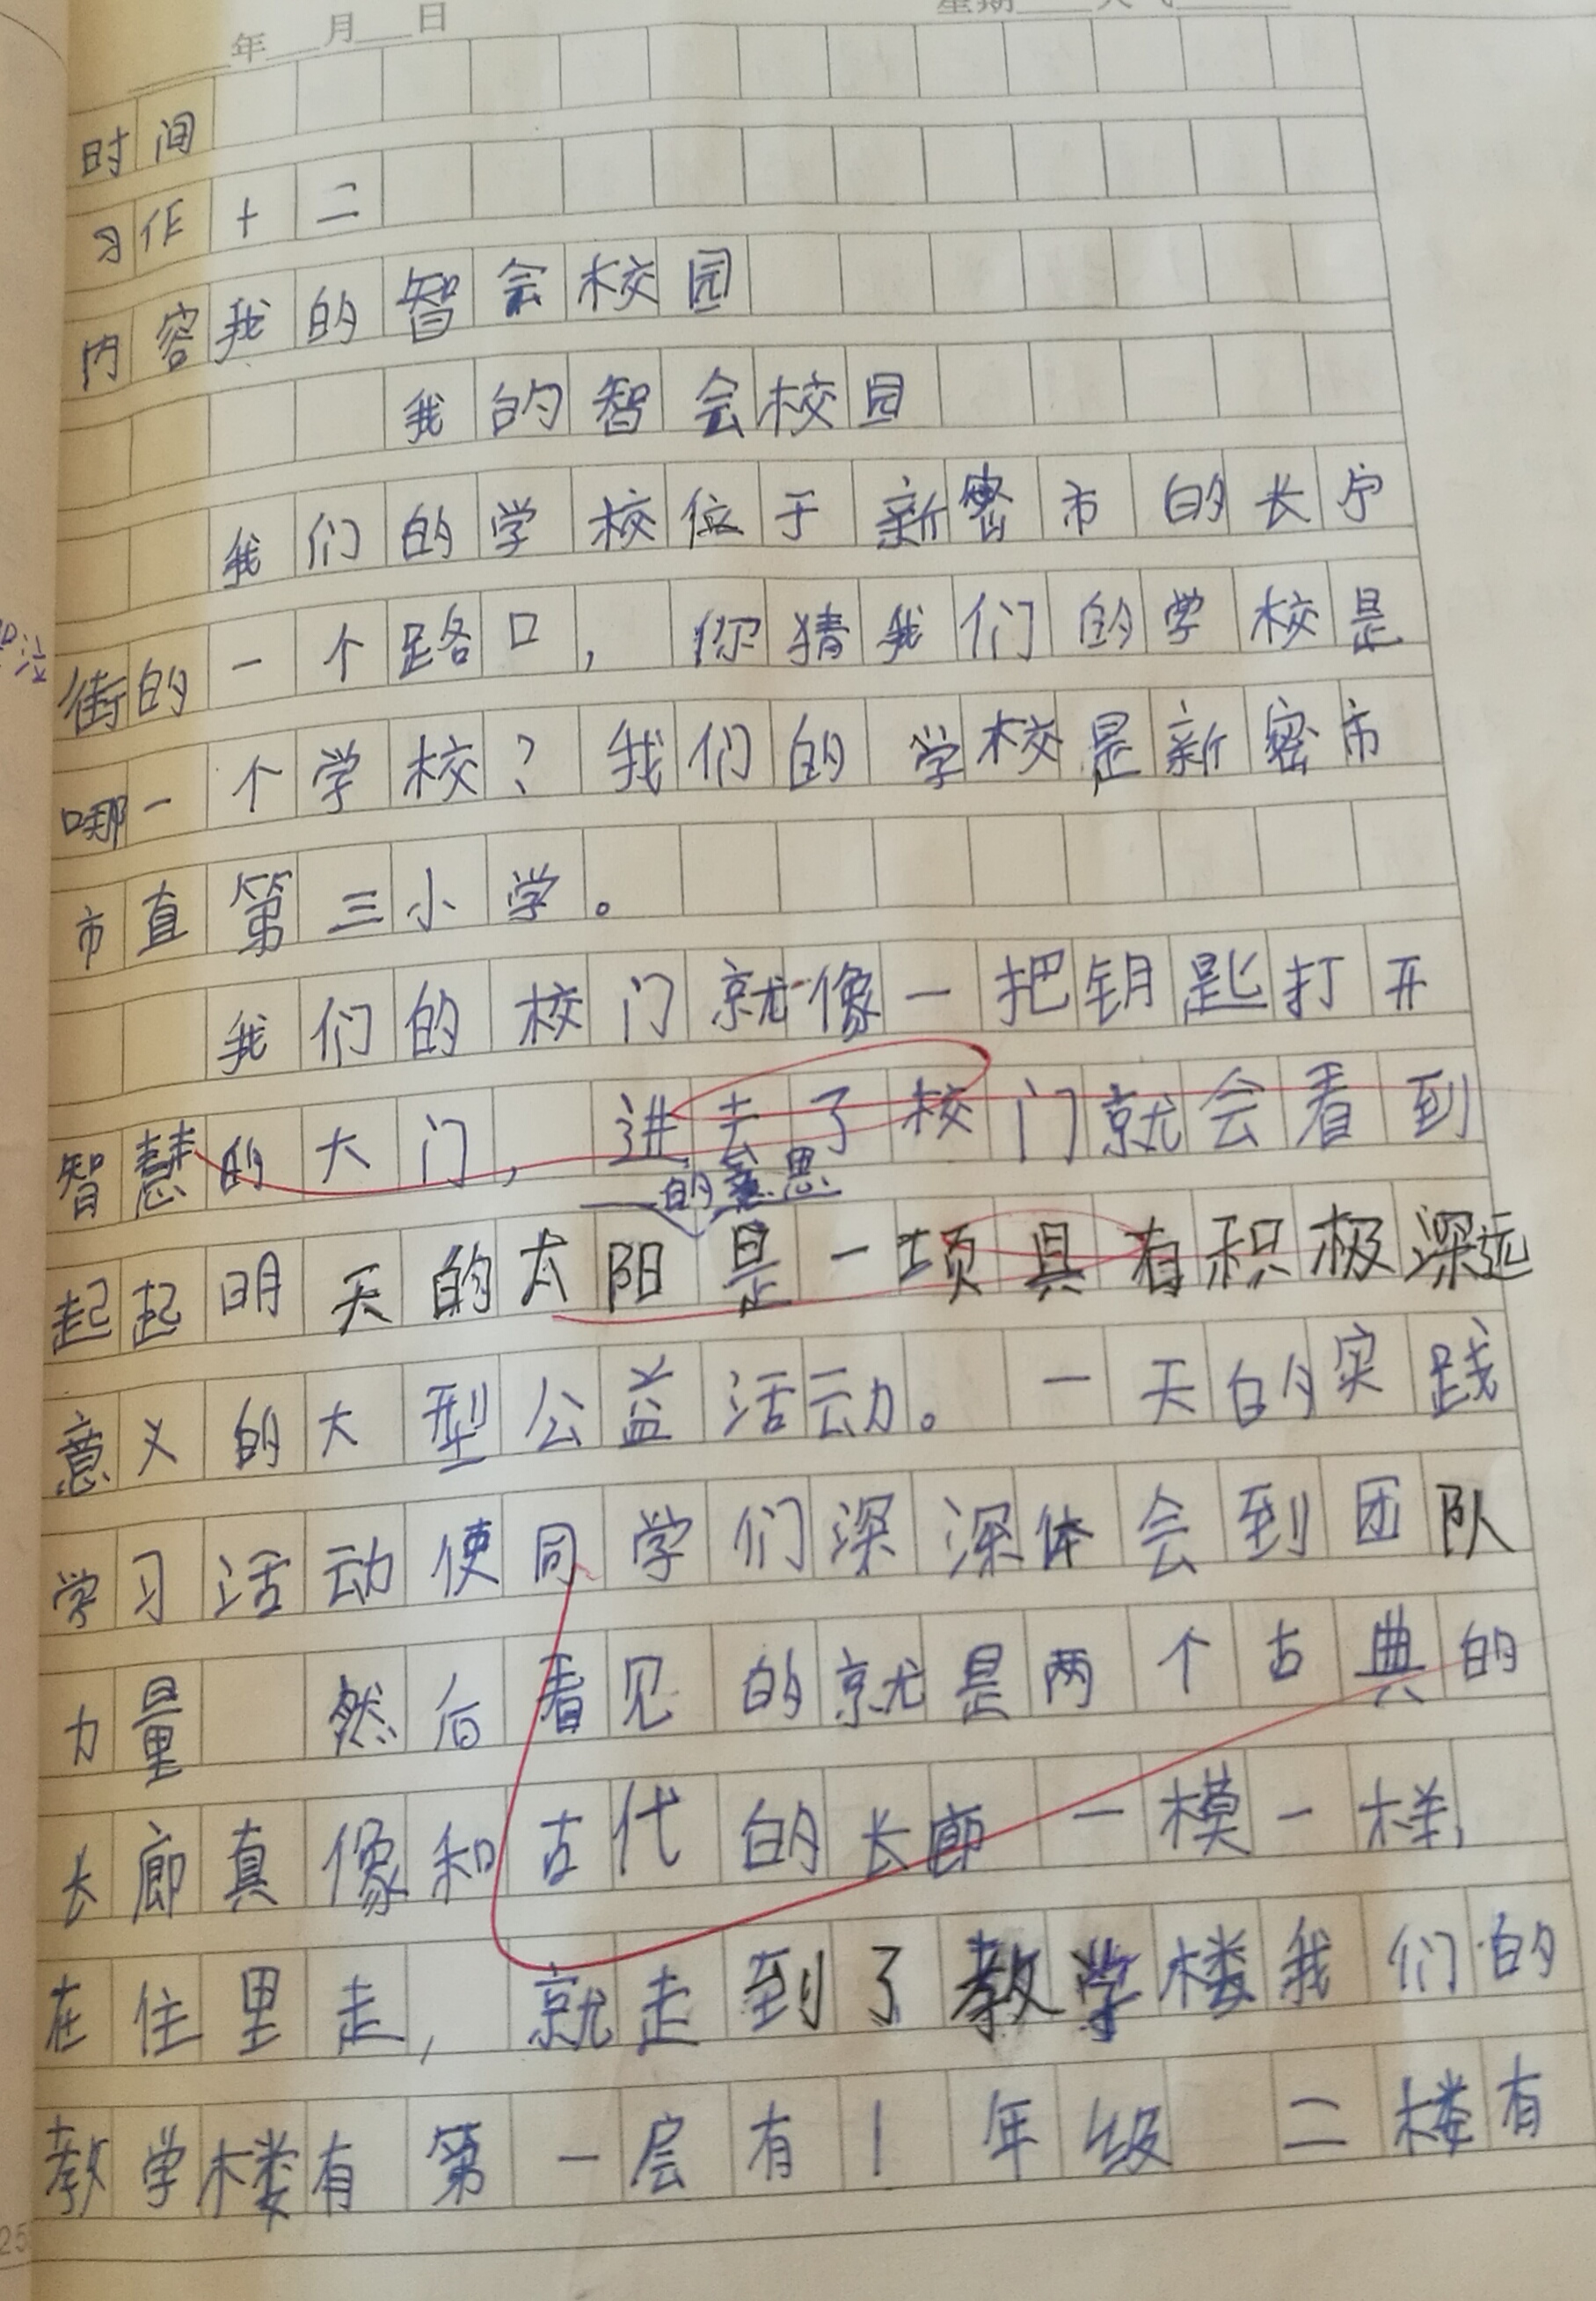 年 月 日
时间
习作十二
内容我的智会校园
我的智会校园
我们的学校位于新密市的长宁
街的一个路口，你猜我们的学校是
哪一个学校？我们的学校是新密市
市直第三小学。
我们的校门就像一把钥匙打开
智慧的大门，进去了校门就会看到
的意思
起起明天的太阳是一项具有积极深远
意义的大型公益活动。一天的实践
学习活动使同学们深深体会到团队
力量 然后看见的就是两个古典的
长廊真像和古代的长廊一模一样，
在住里走，就走到了教学楼我们的
教学楼有第一层有1年级 二楼有
25